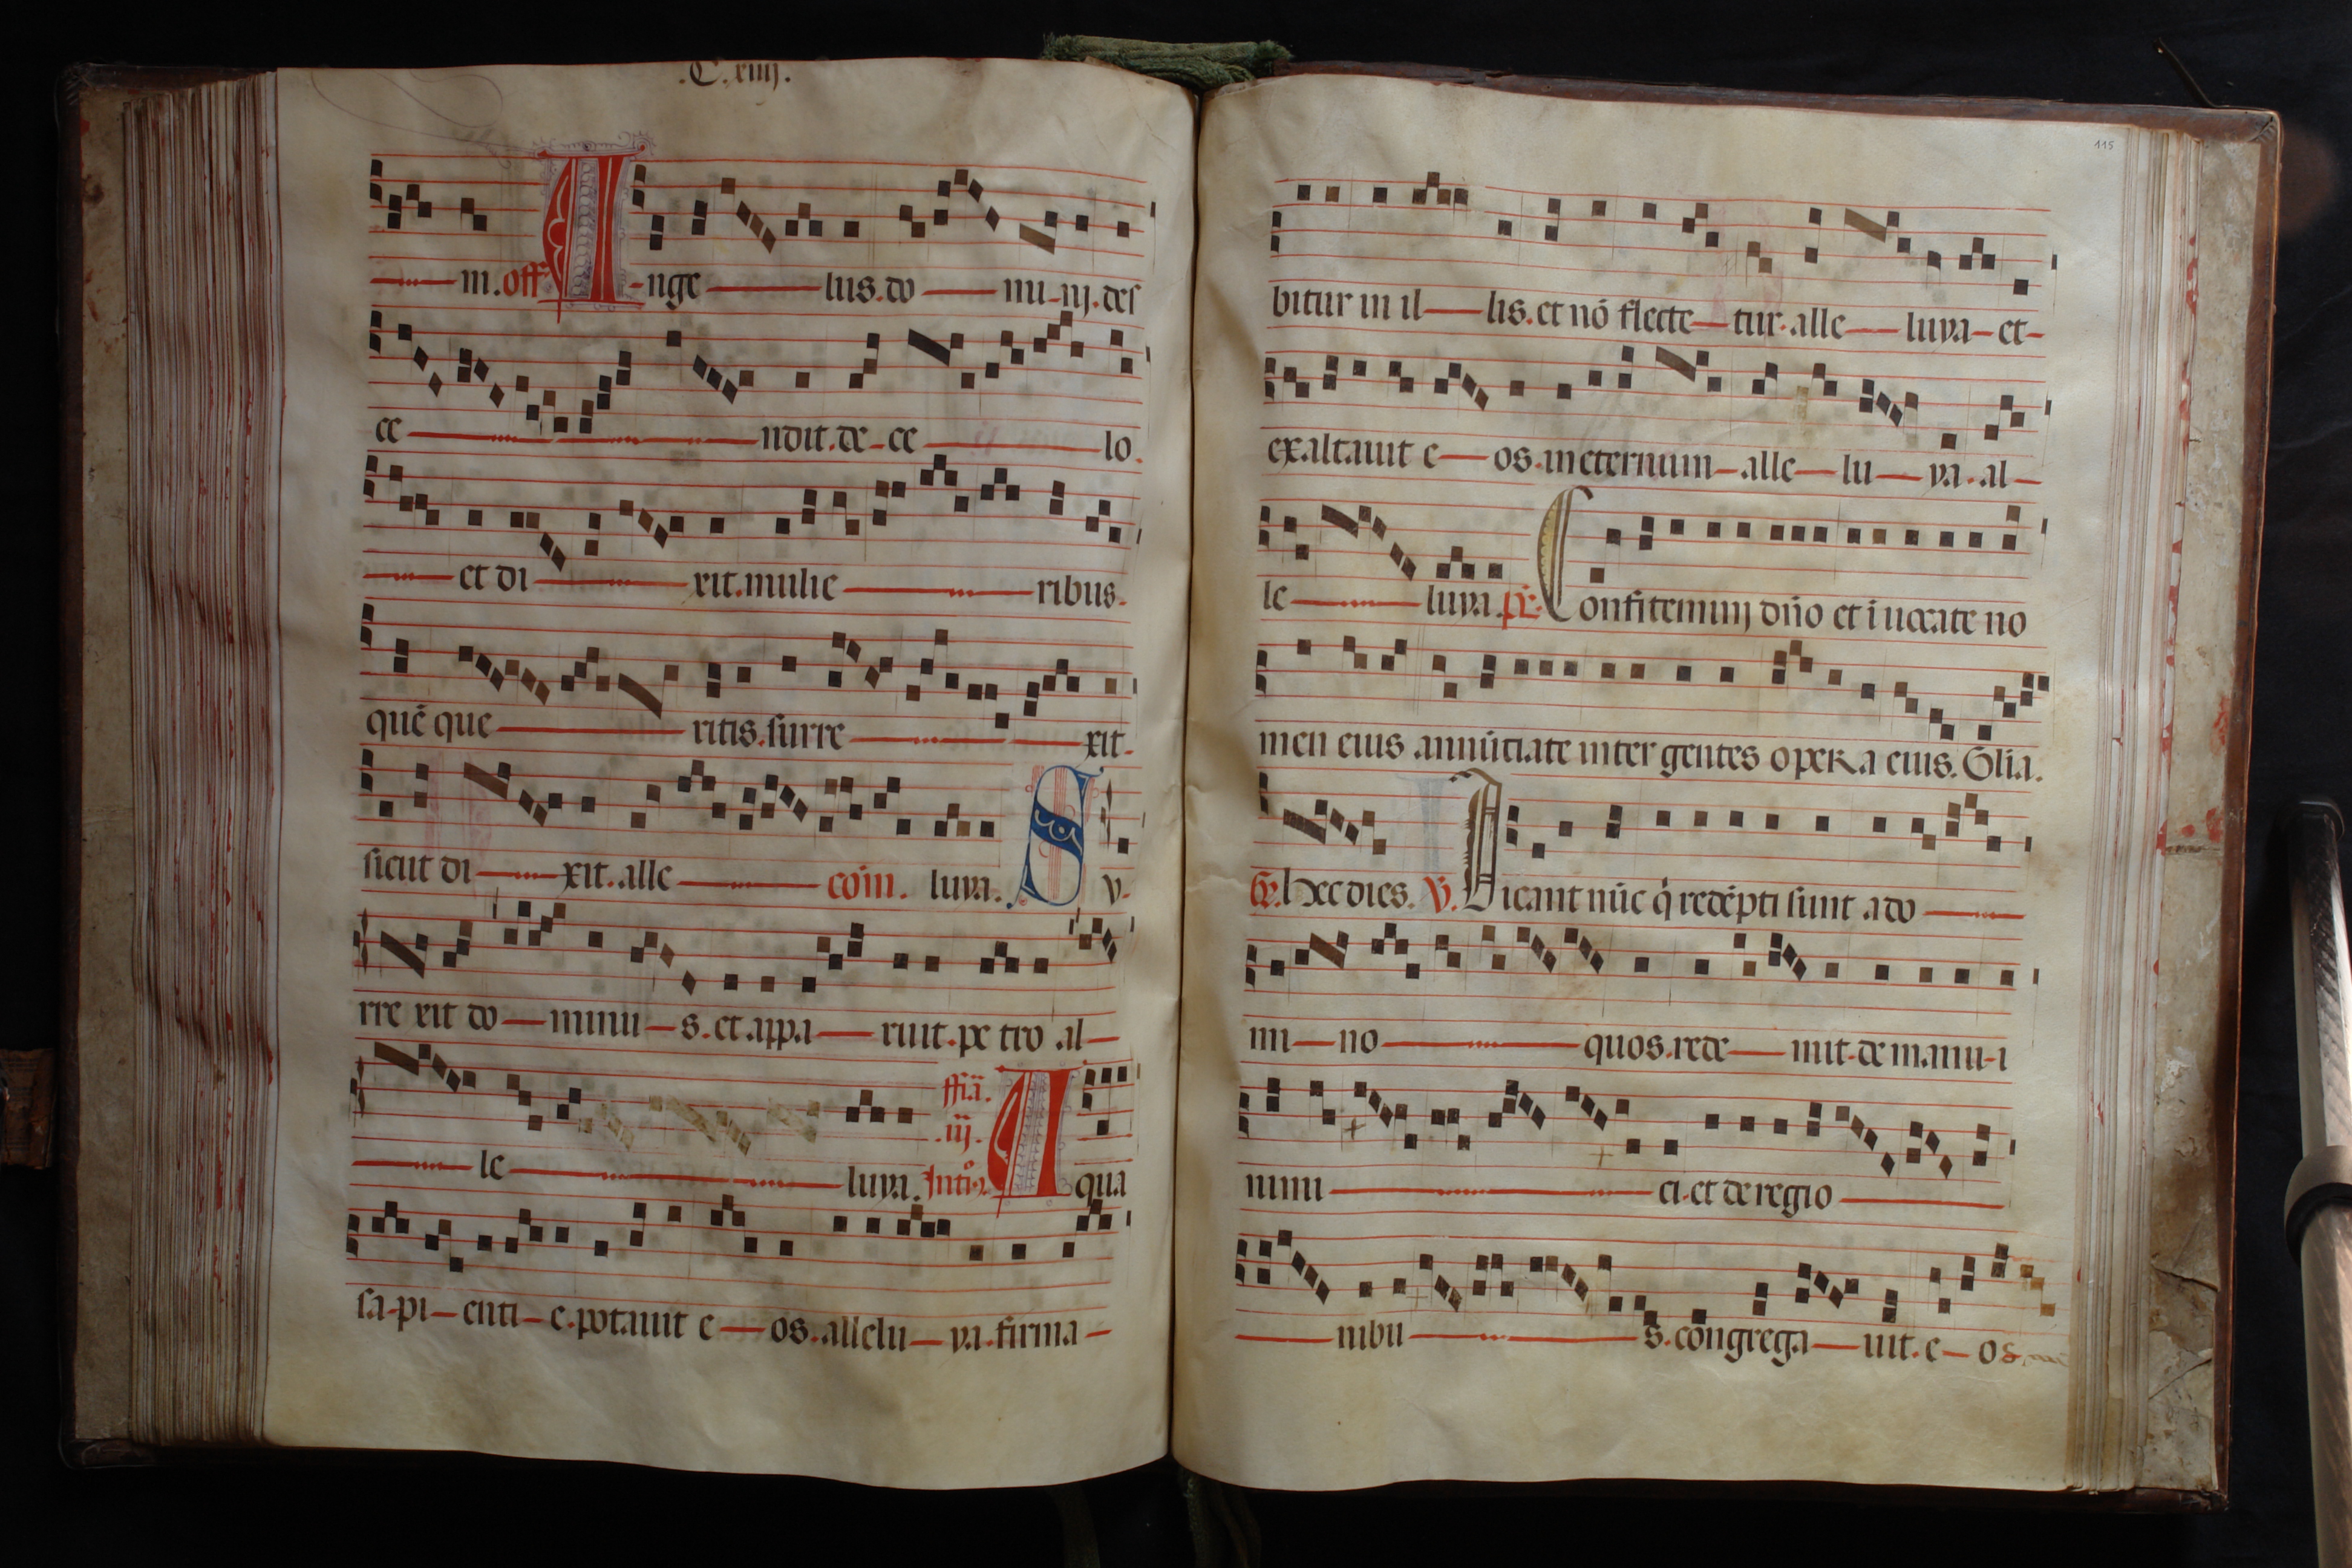 .C.xiiij.
m. off Ange lus. do mi ni. des
ce ndit. de ce lo.
et di xit. mulie ribus.
quē que ritis. surre xit.
sicut di xit. alle luya. cōm. S v.
rre xit do minu s. et appa ruit. pe tro al
le luya. ffīa. .iij. Introꝰ. A qua
sa pi enti e. potauit e os. allelu ya. firma
115
bitur in il lis. et nō flecte tur. alle luya et
exaltauit e os. in eternum alle lu ya. al
le luya. ps̄. Confitemini dn̄o et īuocate no
men eius annūciate inter gentes opera eius. Glīa.
Gr. hec dies. V̄. Dicant nūc q̄ redēpti sunt a do
mi no quos. rede mit. de manu i
nimi ci. et de regio
nibu s. congrega uit. e os.